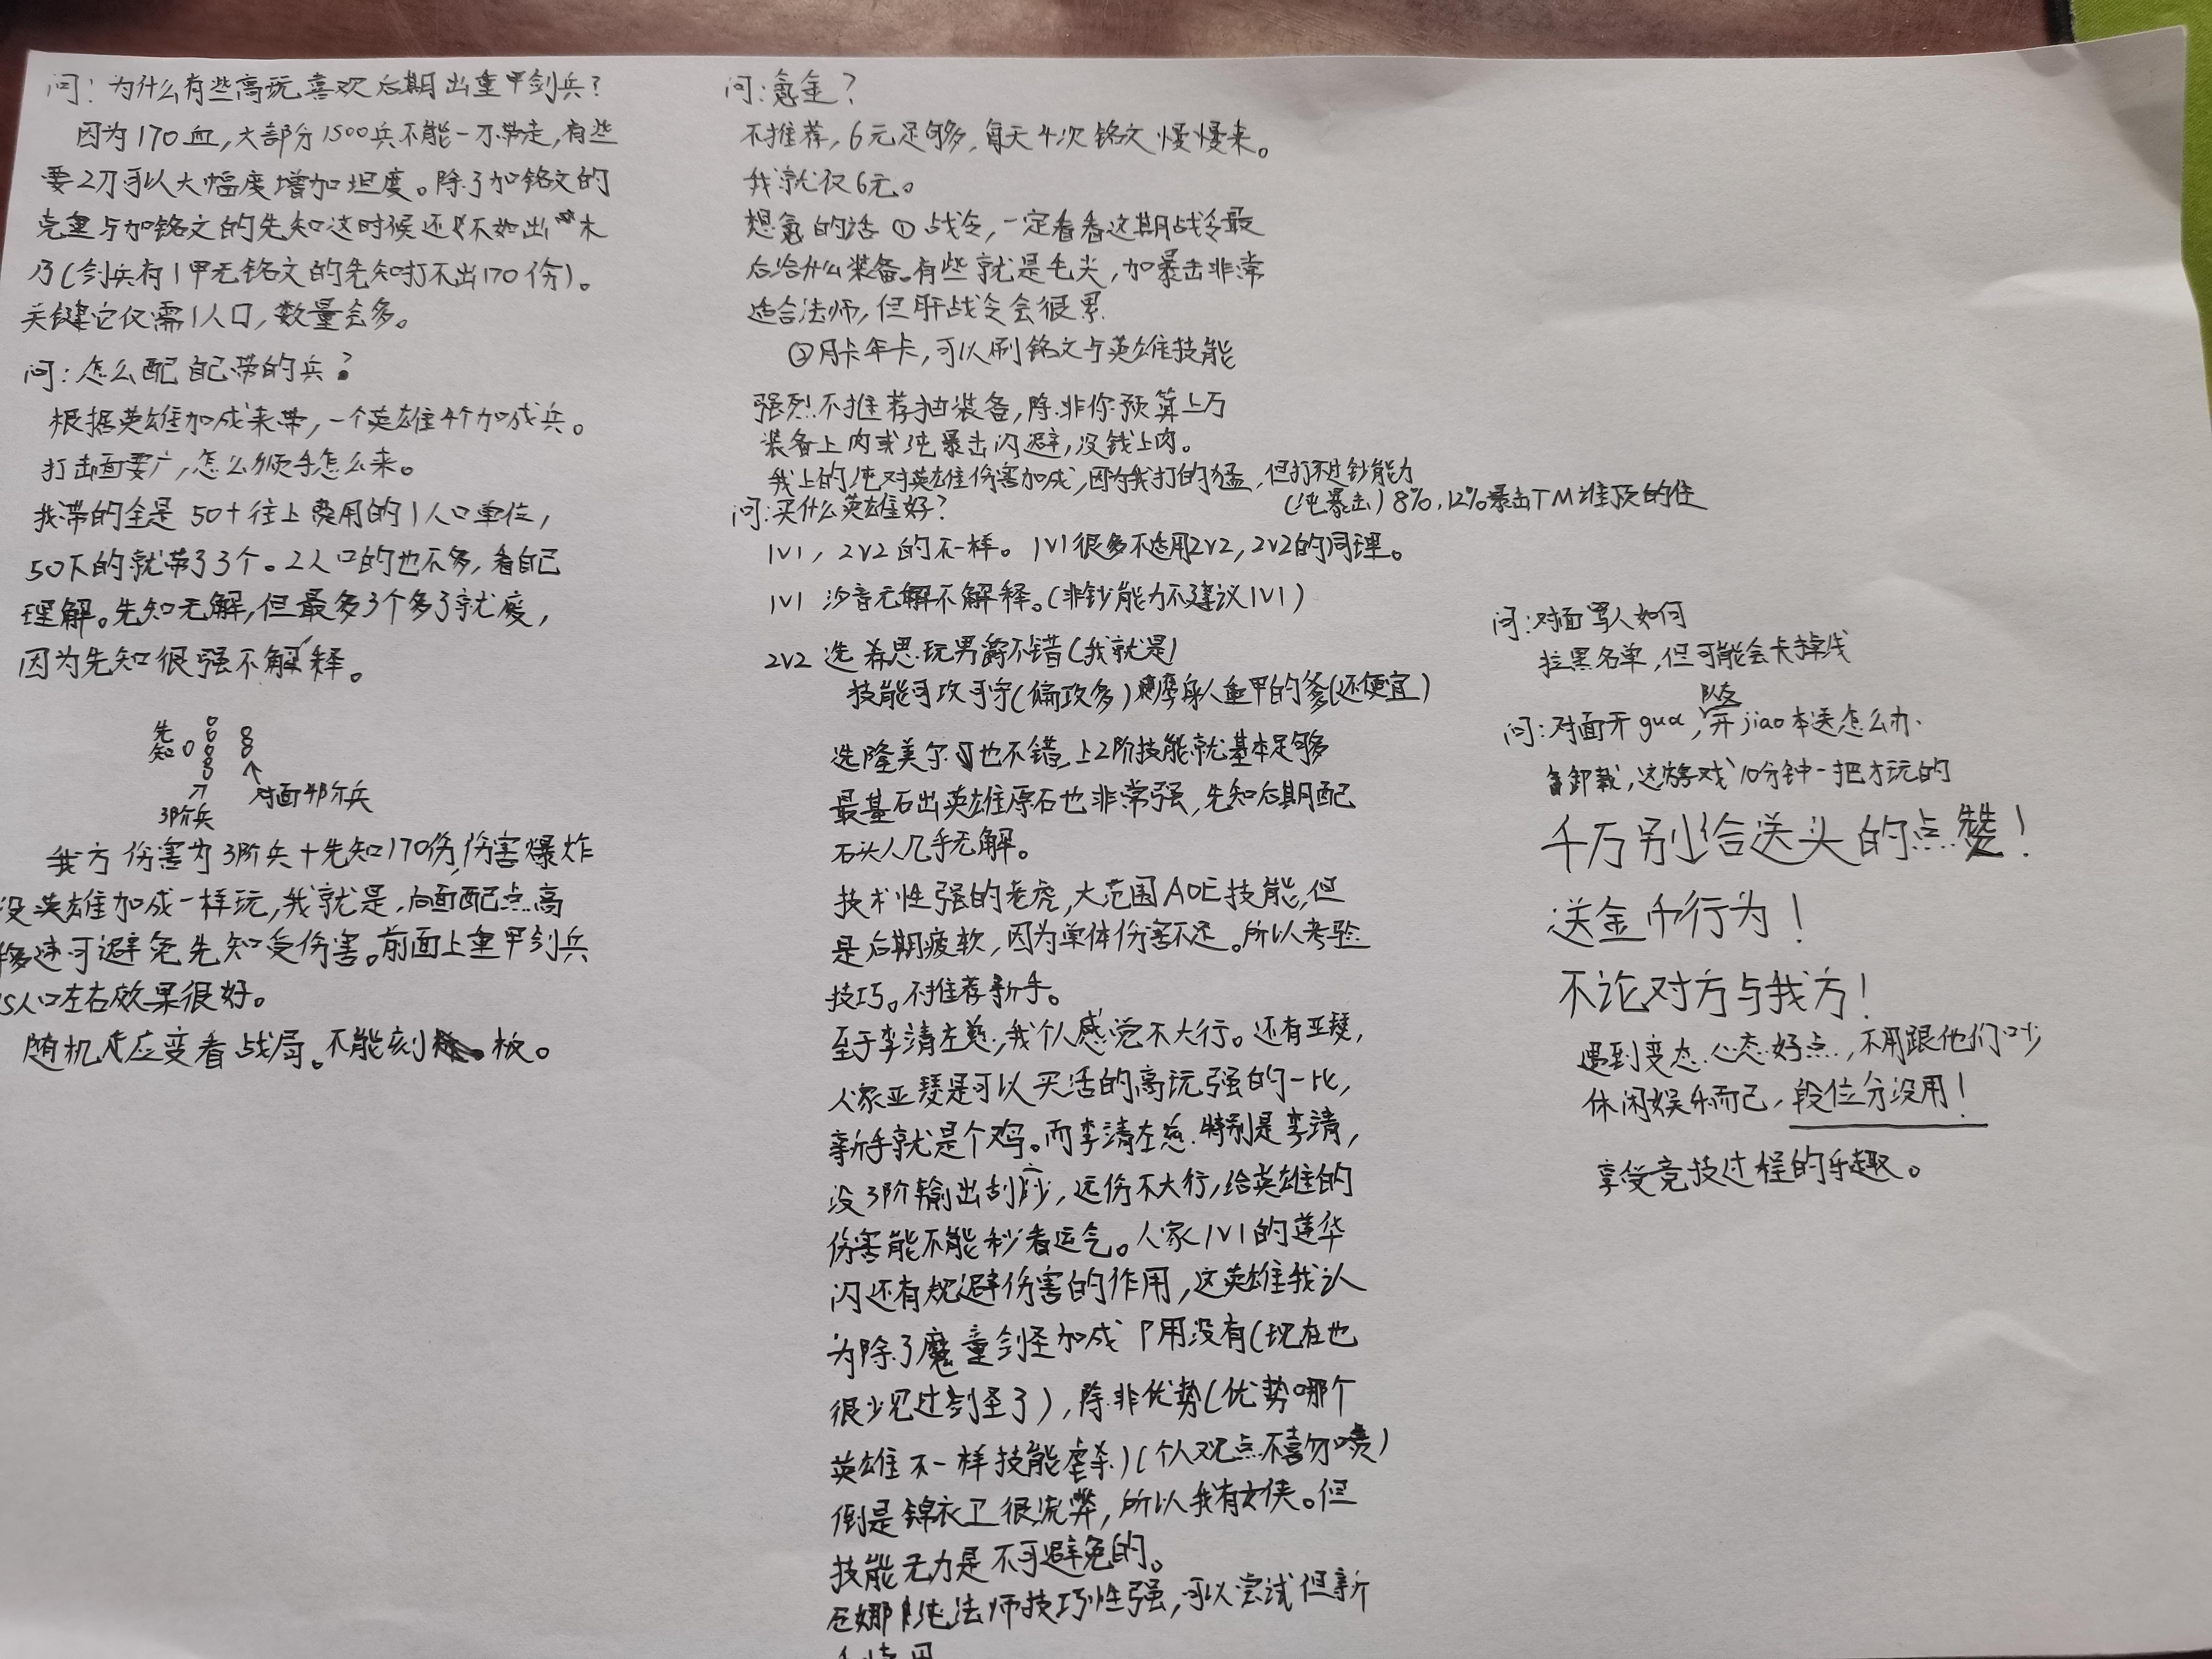 问：为什么有些高玩喜欢后期出重甲剑兵？
因为170血，大部分1500兵不能一刀带走，有些
要2刀可以大幅度增加坦度。除了加铭文的
与加铭文的先知这时候还不如出木
乃(剑兵有1甲无铭文的先知打不出170伤)。
关键它仅需1人口，数量会多。
问：怎么配自己带的兵？
根据英雄加成来带，一个英雄4个加成兵。
打击面要广，怎么顺手怎么来。
我带的全是50+往上费用的1人口单位，
50下的就带了3个。2人口的也不多，看自己
理解。先知无解，但最多3个多了就废，
因为先知很强不解释。
先
知
3阶兵
对面4阶兵
我方伤害为3阶兵+先知170伤，伤害爆炸
没英雄加成一样玩，我就是，后面配点高
移速可避免先知受伤害。前面上重甲剑兵
15人口左右效果很好。
随机应变看战局。不能刻板。
问：氪金？
不推荐，6元足够，每天4次铭文慢慢来。
我就仅6元。
想氪的话①战令，一定看看这期战令最
后给什么装备。有些就是毛尖，加暴击非常
适合法师，但肝战令会很累.
②月卡年卡，可以刷铭文与英雄技能
强烈不推荐抽装备，除非你预算上万
装备上肉或纯暴击闪避，没钱上肉。
我上的纯对英雄伤害加成，因为我打的猛，但打不过钞能力
(纯暴击)8%，12%暴击TM谁顶的住
问：买什么英雄好？
1V1，2V2的不一样。1V1很多不适用2V2，2V2的同理。
1V1 汐音无解不解释。(非钞能力不建议1V1)
2V2 选希思.玩男爵不错(我就是)
技能可攻可守(偏攻多)磨身人重甲的爹(还便宜)
选隆美尔也不错，上2阶技能就基本足够
最基石出英雄原石也非常强，先知后期配
石头人几乎无解。
技术性强的老虎，大范围AOE技能，但
是后期疲软，因为单体伤害不足。所以考验
技巧。不推荐新手。
至于李清左慈，我个人感觉不大行。还有亚瑟，
人家亚瑟是可以买活的高玩强的一比，
新手就是个鸡。而李清左慈.特别是李清，
没3阶输出刮痧，远伤不大行，给英雄的
伤害能不能秒看运气。人家1V1的莲华
闪还有规避伤害的作用，这英雄我认
为除了魔童剑圣加成P用没有(现在也
很少见过剑圣了)，除非优势(优势哪个
英雄不一样技能虐杀)(个人观点不喜勿喷)
倒是锦衣卫很流弊，所以我有女侠。但
技能无力是不可避免的。
娜纯法师技巧性强，可以尝试但新
问：对面骂人如何
拉黑名单，但可能会卡掉线
队友
问：对面开gua，开jiao本送怎么办.
卸载，这游戏10分钟一把才玩的
千万别给送头的点赞！
送金币行为！
不论对方与我方！
遇到变态.心态好点.，不用跟他们吵
休闲娱乐而已，段位分没用！
享受竞技过程的乐趣。